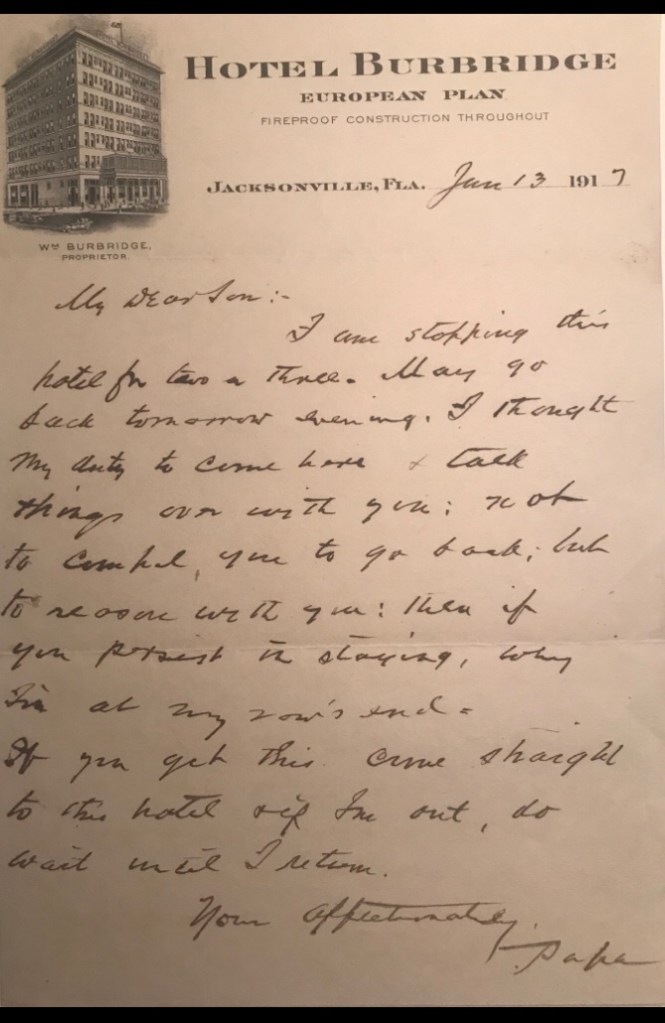 HOTEL BURBRIDGE
EUROPEAN PLAN
FIREPROOF CONSTRUCTION THROUGHOUT
JACKSONVILLE, FLA. Jan 13 1917
Wm BURBRIDGE,
PROPRIETOR.
My Dear Son:-
I am stopping this
hotel for two or three. May go
back tomorrow evening. I thought
my duty to come here & talk
things over with you; not
to compel you to go back; but
to reason with you: then if
you persist in staying, why
I'm at my row's end.
If you get this come straight
to this hotel & if I'm out, do
wait until I return.
Your affectionately,
Papa